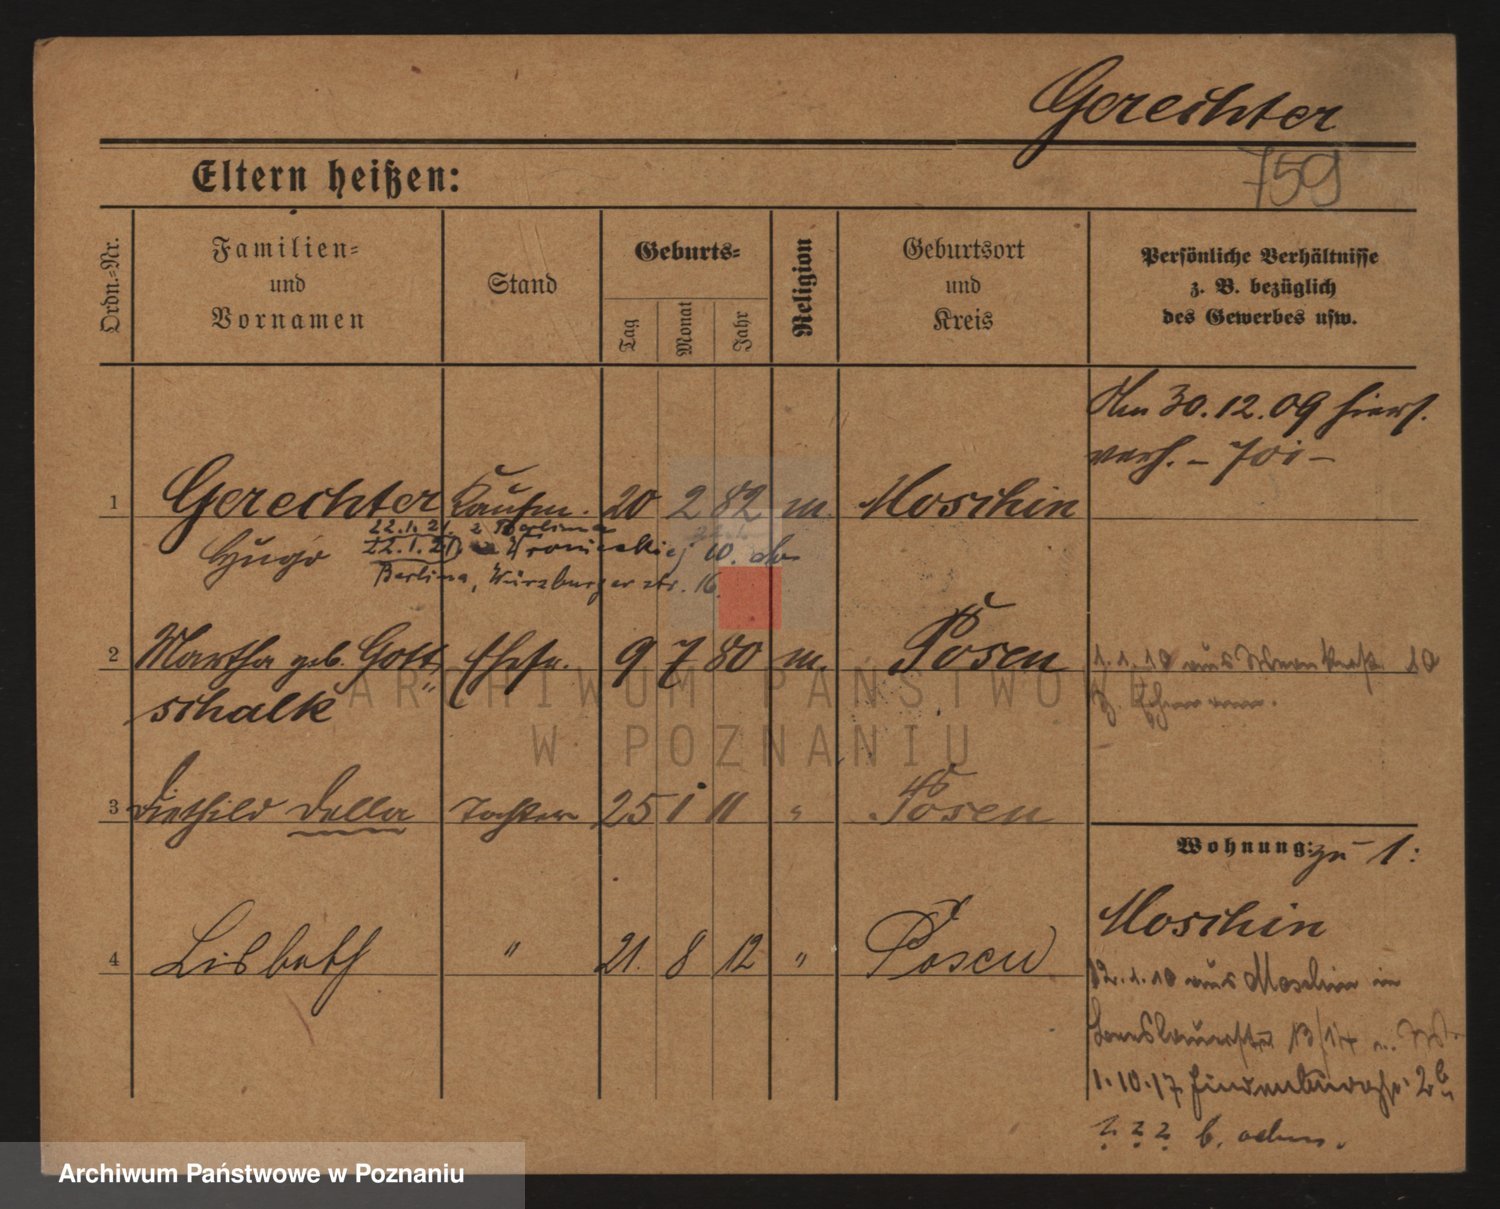 Gerechter
759
Eltern heißen:
Ordn.-Nr.
Familien-
und
Vornamen
Stand
Geburts-
Tag
Monat
Jahr
Religion
Geburtsort
und
Kreis
Persönliche Verhältnisse
z. B. bezüglich
des Gewerbes usw.
Am 30.12.09 hiers.
verh. –
1 Gerechter Kaufm. 20 2 82 m. Moschin
22.1.21. z Berlina
Hugo 22.1.21 Wronieckiej 10. do
Berlina, Würzburger str. 16.
2 Martha geb. Gott„ Ehefr. 9 7 80 m. Posen
"schalk
1.1.10 aus 10
3 Diethild Della Tochter 25 1 11 " Posen
4 Lisbeth " 21. 8 12 " Posen
Wohnung: zu 1:
Moschin
12.1.10 aus Moschin in
13/14
1.10.17 Hindenburgstr. 2b
? ? ? b.
ARCHIWUM PAŃSTWOWE
W POZNANIU
Archiwum Państwowe w Poznaniu